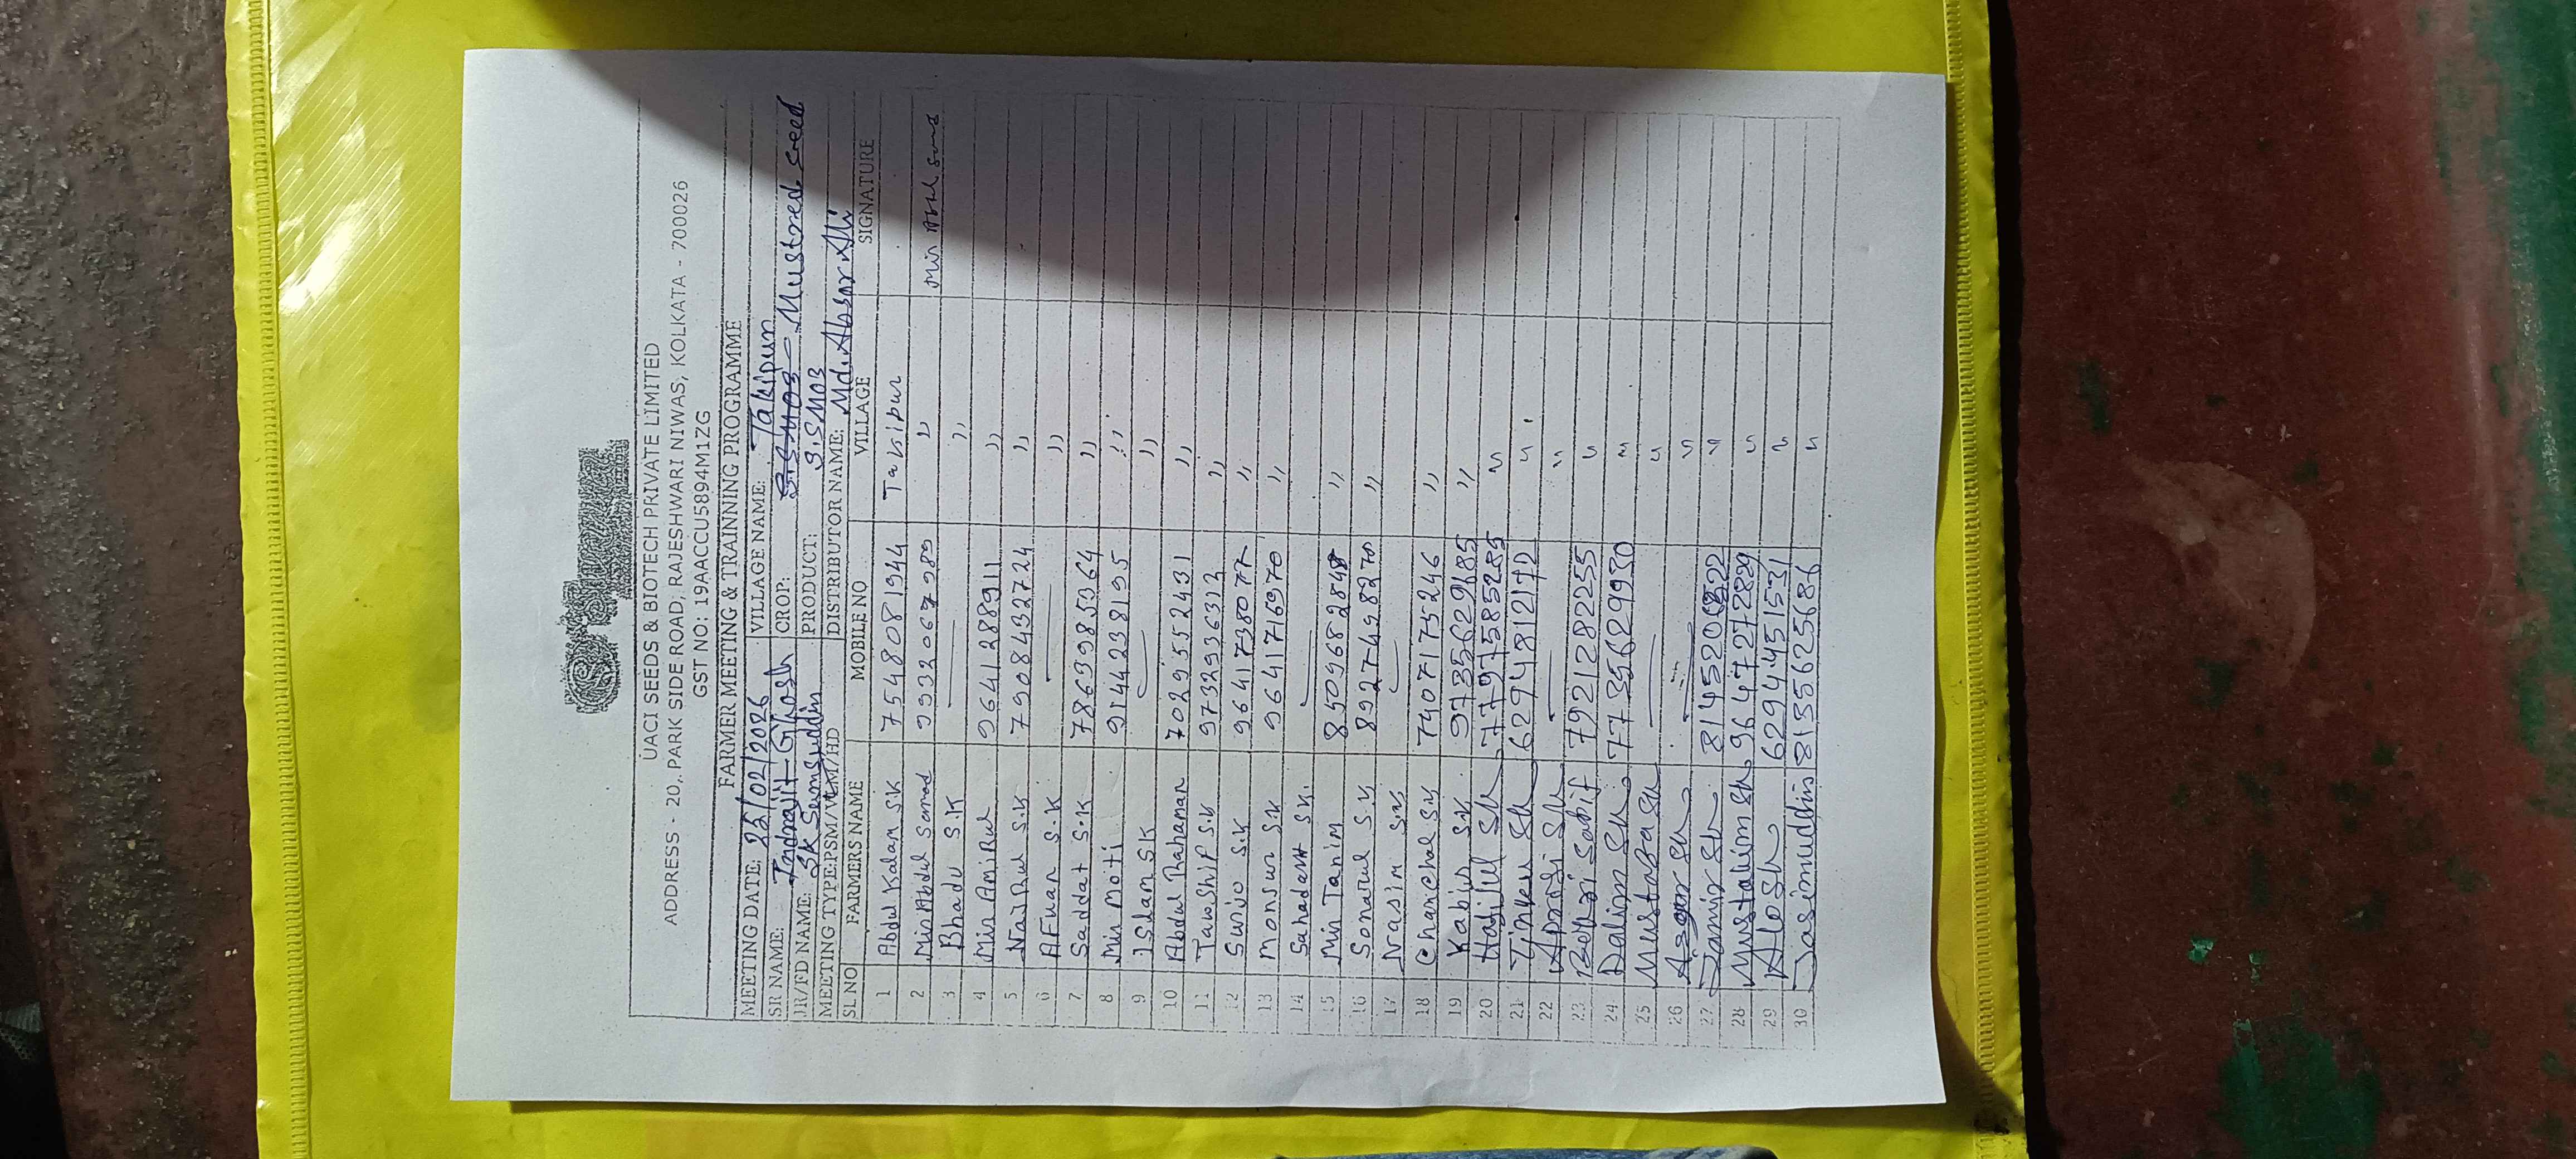 UACI SEEDS & BIOTECH PRIVATE LIMITED
ADDRESS - 20,. PARK SIDE ROAD, RAJESHWARI NIWAS, KOLKATA - 700026
GST NO: 19AACCU5894M1ZG
FARMER MEETING & TRAINNING PROGRAMME
MEETING DATE: 22/02/2026 VILLAGE NAME: Takipur
SR NAME: Indrajit Ghosh CROP: Mustored seed
JR/FD NAME: SK Samsuddin PRODUCT: S.SM03
MEETING TYPE:PSM/VLM/HD DISTRIBUTOR NAME: Md. Absar Ali
SL NO FARMERS NAME MOBILE NO VILLAGE SIGNATURE
1 Abdul Kalam SK 7548081944 Takipur
2 Mir Abdul Samad 9932067989 "
3 Bhadu S.K — "
4 Mir Amirul 9641288911 "
5 Nazrul S.K 7908432724 "
6 AFuan S.K — "
7 Saddat S.K 7863985364 "
8 Mir Moti 9144238195 "
9 ISlam SK — "
10 Abdul Rahaman 7029552431 "
11 TawShif S.K 9732936313 "
12 Surjo S.K 9641738077 "
13 Monsur SK 9641716970 "
14 Sahadent S.K. —
15 Mir Tanim 8509682848 "
16 Sonarul S.K 8927498270 "
17 Nasim S.K —
18 Chanchal S.K 7407175246 "
19 Kabir S.K 9735629685 "
20 Hasijul SK 7797585285 "
21 Tinku SK 6294812172 "
22 SK — "
23 Sabif 7921282255 "
24 Dalim SK 7735629930 "
25 Mustafa SK — "
26 Asgar SK — "
27 Jamir SK 81452 "
28 Mustakim SK 9647272889 "
29 Alo SK 6294451531 "
30 Jasimuddin 8135625686 "